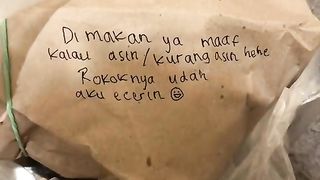 Di makan ya maaf
kalau asin/kurang asin hehe
Rokoknya udah
aku ecerin ☺